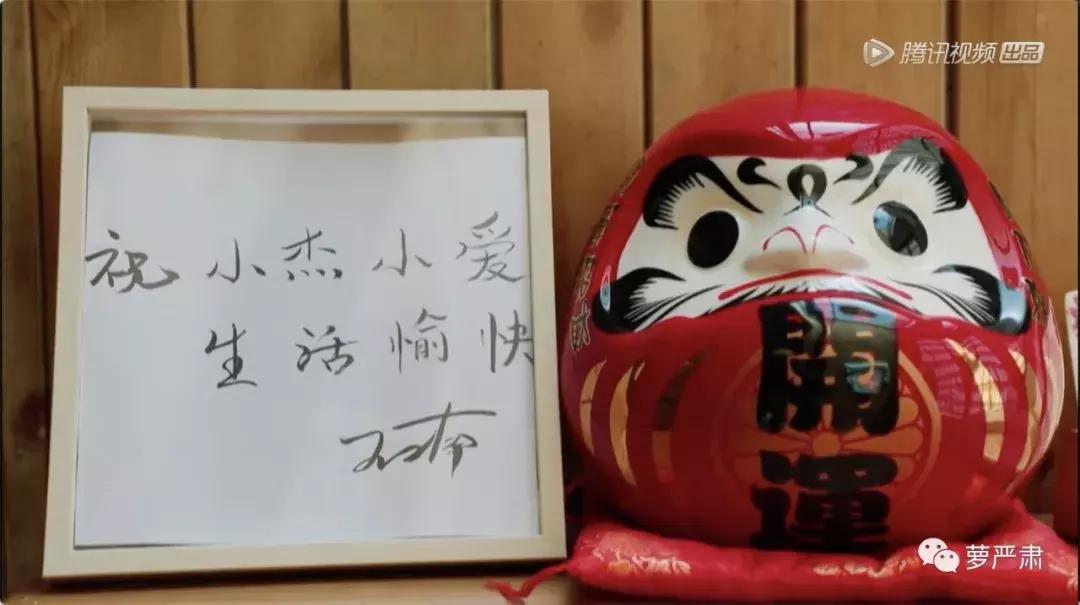 腾讯视频 出品
祝 小杰小爱
生活愉快
開運
萝严肃